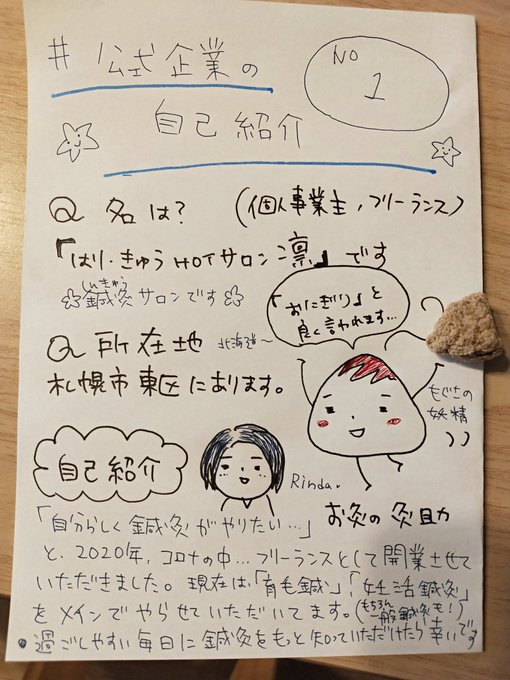 # 公式企業の
NO
1
自己紹介
Q 名は? (個人事業主,フリーランス)
「はり・きゅうHOTサロン凛」です
しんきゅう
☆鍼灸サロンです☆
「おにぎり」と
良く言われます…
Q 所在地 北海道〜
札幌市東区にあります。
もぐさの
妖精
自己紹介
Rinda.
お灸の灸助
「自分らしく鍼灸がやりたい…」
と、2020年,コロナの中…フリーランスとして開業させて
いただきました。現在は、「育毛鍼」「妊活鍼灸」
をメインでやらせていただいてます。(もちろん一般鍼灸も!)
過ごしやすい毎日に鍼灸をもっと知っていただけたら幸いです